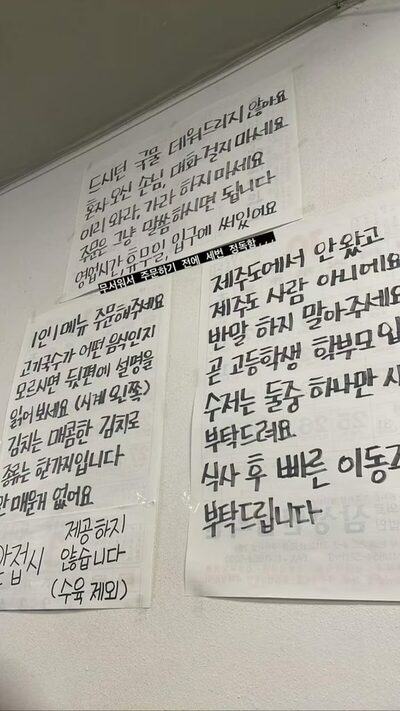 드시던 국물 데워드리지 않아요
혼자 오신 손님, 대화 걸지 마세요
이리 와라, 가라 하지 마세요
주문은 그냥 말씀하시면 됩니다
영업시간, 휴무일, 입구에 써있어요
무서워서 주문하기 전에 세번 정독함...
1인 1메뉴 주문해주세요
고기국수가 어떤 음식인지
모르시면 뒷편에 설명을
읽어보세요 (시계 왼쪽)
김치는 매콤한 김치로
종류는 한가지입니다
안 매운거 없어요
앞접시 제공하지
않습니다
(수육 제외)
제주도에서 안 왔고
제주도 사람 아니에요
반말 하지 말아주세요
곧 고등학생 학부모
수저는 둘중 하나만
부탁드려요
식사 후 빠른 이동
부탁드립니다